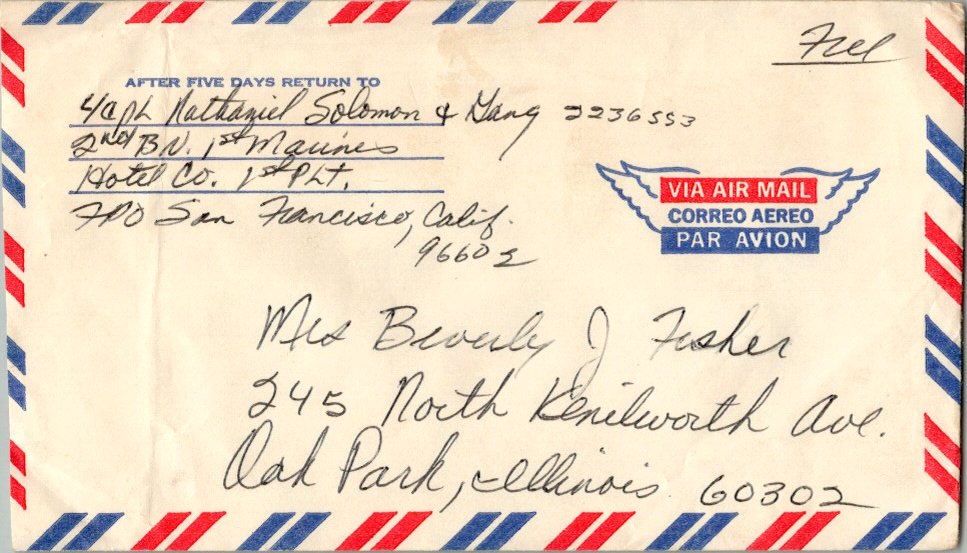 Free
AFTER FIVE DAYS RETURN TO
L/CPL Nathaniel Solomon & Gang 2236553
2nd BN. 1st Marines
Hotel Co. 1st PLT.
FPO San Francisco, Calif.
96602
VIA AIR MAIL
CORREO AEREO
PAR AVION
Mrs Beverly J Fisher
245 North Kenilworth Ave.
Oak Park, Illinois 60302